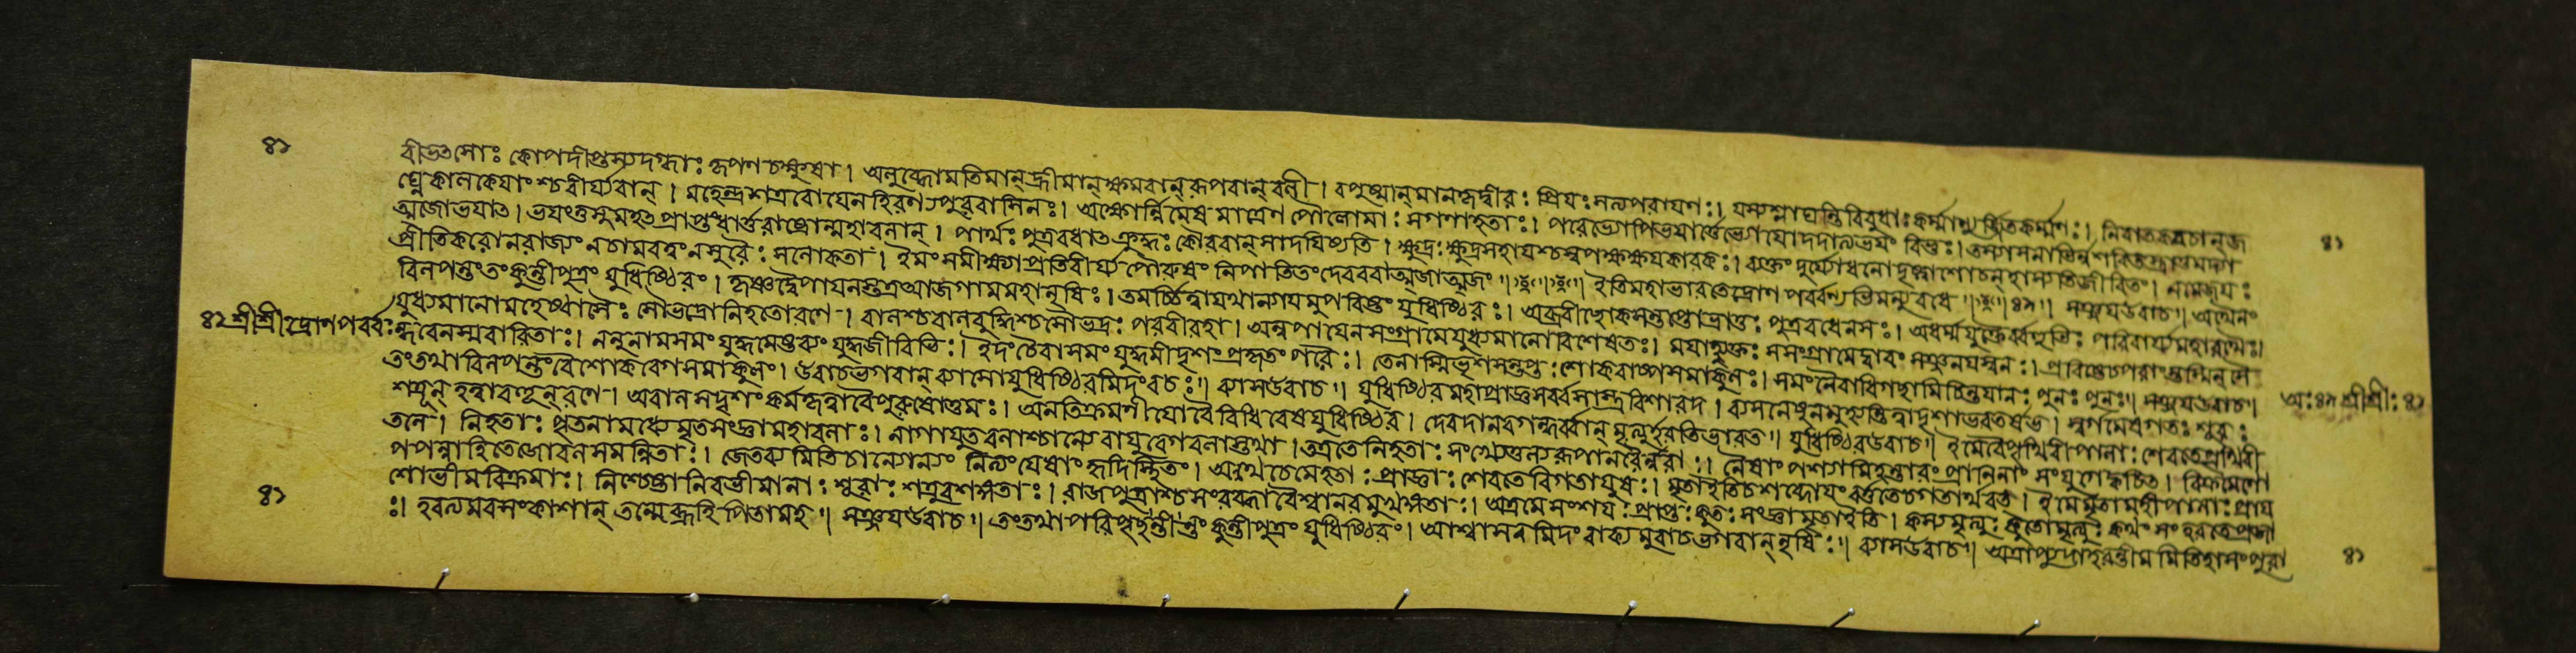 ৪১
বীভৎসোঃ কোপদীপ্তস্য দগ্ধাঃ কৃপণচক্ষুষা । অলুব্ধোমতিমান্ হ্রীমান্ ক্ষমবান্ রূপবান্ বলী । বপুষ্মান্ মানকৃদ্বীরঃ প্রিয়ঃ সত্যপরায়ণঃ । যস্য শ্লাঘন্তি বিবুধাঃ কর্ম্মাণ্যূর্জিতকর্ম্মণঃ । নিবাতকবচান্ জ
ঘ্নে কালকেয়াংশ্চ বীর্য্যবান্ । মহেন্দ্রশত্রবো যেন হিরণ্যপুরবাসিনঃ । অক্ষ্ণোর্ন্নিমেষমাত্রেণ পৌলোমাঃ সগণাহতাঃ । পরেভ্যোপি ভয়ার্ত্তেভ্যো যো দদাত্যভয়ং বিভুঃ ।
ত্মজোভয়াৎ । ভয়ংতু সুমহৎ প্রাপ্তং ধার্ত্তরাষ্ট্রান্মহাবলান্ । পার্থঃ পুত্রবধাৎ ক্রুদ্ধঃ কৌরবান্ সাদয়িষ্যতি । ক্ষুদ্রঃ ক্ষুদ্রসহায়শ্চ স্বপক্ষক্ষয়কারকঃ । ব্যক্তং দুর্য্যোধনো দৃষ্ট্বা শোচন্ হাস্যতি জীবিতং । নমেজয়ঃ
প্রীতিকরোনরাজ্যং নচামরত্বং নসুরৈঃ সলোকতা । ইমং সমীক্ষ্যাপ্রতিবীর্য্যপৌরুষং নিপাতিতং দেববরাত্মজাত্মজং ॥ ইতি মহাভারতে দ্রোণপর্ব্বণ্যভিমন্যুবধে ॥ ৪৯ ॥ সঞ্জয়উবাচ ॥ অথৈনং
বিলপন্তং তং কুন্তীপুত্রং যুধিষ্ঠিরং । কৃষ্ণদ্বৈপায়নস্তত্র আজগাম মহানৃষিঃ । তমর্চ্চিত্বা যথান্যায়মুপবিষ্টং যুধিষ্ঠিরঃ । অব্রবীচ্ছোকসন্তপ্তো ভ্রাতুঃ পুত্রবধেনসঃ । অধর্ম্মযুক্তৈর্ব্বহুভিঃ পরিবার্য্য মহারথৈঃ ।
যুধ্যমানোমহেষ্বাসৈঃ সৌভদ্রোনিহতোরণে । বালশ্চ বালবুদ্ধিশ্চ সৌভদ্রঃ পরবীরহা । অনুপায়েন সংগ্রামে যুধ্যমানো বিশেষতঃ । ময়াপ্রোক্তঃ সসংগ্রামে দ্বারং সঞ্জনয়স্বনঃ ।
৪১ শ্রীশ্রীদ্রোণপর্ব্বঃ
ন্ধবেনস্মবারিতাঃ । ননুনামসমং যুদ্ধমেষ্টব্যং যুদ্ধজীবিভিঃ । ইদং চৈবাসমং যুদ্ধমীদৃশং প্রকৃতং পরৈঃ । তেনাস্মি ভৃশসন্তপ্তঃ শোকবাষ্পসমাকুলঃ । শমং নৈবাধিগচ্ছামি চিন্তয়ানঃ পুনঃ পুনঃ ॥ সঞ্জয়উবাচ ॥
তং তথা বিলপন্তং বৈ শোকবেগসমাকুলং । উবাচ ভগবান্ ব্যাসো যুধিষ্ঠিরমিদংবচঃ ॥ ব্যাসউবাচ ॥ যুধিষ্ঠির মহাপ্রাজ্ঞ সর্ব্বশাস্ত্রবিশারদ । ব্যসনেষু নমুহ্যন্তি ত্বাদৃশা ভরতর্ষভ । স্বর্গমেষগতঃ শূরঃ
শত্রূন্ হত্বা বহূন্ রণে । অবালসদৃশং কর্ম্মকৃত্বাবৈপুরুষোত্তমঃ । অনতিক্রমণীয়ো বৈ বিধিরেষ যুধিষ্ঠির । দেবদানবগন্ধর্ব্বান্ মৃত্যুর্হরতি ভারত ॥ যুধিষ্ঠিরউবাচ ॥ ইমেবৈ পৃথিবীপালাঃ শেরতে পৃথিবী
তলে । নিহতাঃ পৃতনামধ্যে মৃতসংজ্ঞা মহাবলাঃ । নাগাযুতবলাশ্চান্যে বায়ুবেগবলাস্তথা । তত্রতে নিহতাঃ সংখ্যেতুল্যরূপানরৈর্ন্নরাঃ । নৈষাং পশ্যামি হন্তারং প্রাণিনাং সংযুগে ক্বচিৎ । বিক্রমেণো
পপন্নাহি তেজোবলসমন্বিতাঃ । জেতব্যমিতি চান্যোন্যং নিত্যং যেষাং হৃদিস্থিতং । অথচেমেহতাঃ প্রাজ্ঞাঃ শেরতে বিগতায়ুষঃ । মৃতাইতিচ শব্দোয়ং বর্ত্ততেচ গতার্থবৎ । ইমেমৃতা মহীপালাঃ প্রায়
শো ভীমবিক্রমাঃ । নিশ্চেষ্টা নিরভীমানাঃ শূরাঃ শত্রুবশঙ্গতাঃ । রাজপুত্রাশ্চ সংরব্ধা বৈশ্বানরমুখঙ্গতাঃ । অত্রমে সংশয়ঃ প্রাপ্তঃ কুতঃ সংজ্ঞা মৃতাইতি । কস্য মৃত্যুঃ কুতো মৃত্যুঃ কথং সংহরতে প্রজা
ঃ । হরত্যমরসংকাশান্ তন্মেব্রূহি পিতামহ ॥ সঞ্জয়উবাচ ॥ তং তথা পরিপৃচ্ছন্তং কুন্তীপুত্রং যুধিষ্ঠিরং । আশ্বাসনমিদং বাক্যমুবাচ ভগবান্ ঋষিঃ ॥ ব্যাসউবাচ ॥ অত্রাপ্যুদাহরন্তীমমিতিহাসং পুরা
৪১
৪১
অঃ ৪৯ শ্রীশ্রীঃ ৪১
৪১